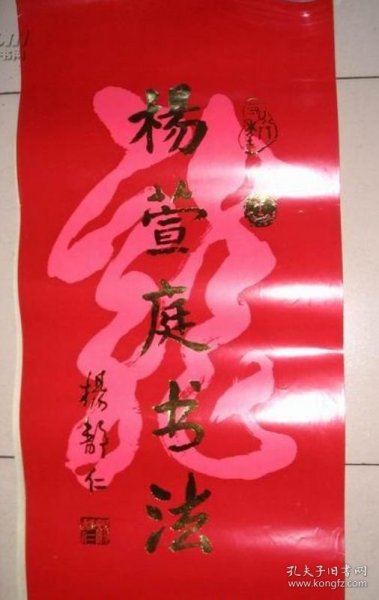 杨萱庭书法
楊靜仁
孔夫子旧书网
www.kongfz.com